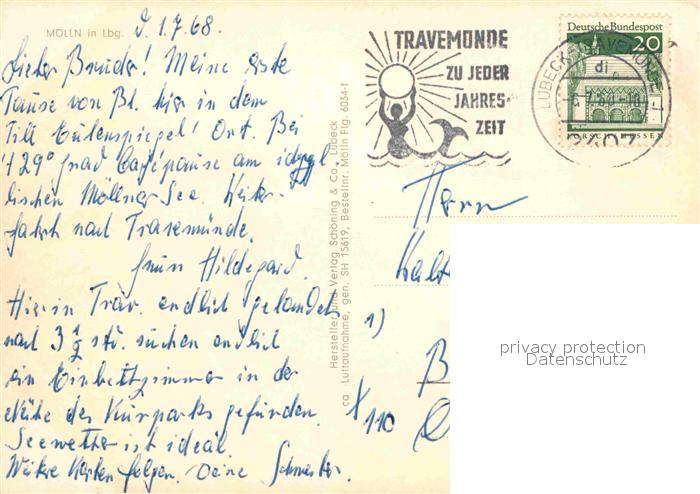 MÖLLN in Lbg.
d. 1.7.68.
Lieber Bruder! Meine erste
Pause von Bl. hier in dem
Till Eulenspiegel! Ort. Bei
+29° grad Cafépause am idyl-
lischen Möllner See. Weiter-
fahrt nach Travemünde.
Gruss Hildegard.
Hier in Trav. endlich gelandet
nach 3 1/2 std. suchen endlich
ein Einbettzimmer in der
Nähe des Kurparks gefunden.
Seewetter ist ideal.
Weitere Karten folgen. Deine Schwester.
Hersteller und Verlag Schöning & Co., Lübeck
ca Luftaufnahme, gen. SH 15619, Bestellnr. Mölln Flg. 6034-f
TRAVEMÜNDE
ZU JEDER
JAHRES-
ZEIT
LÜBECK-TRAVEMÜNDE 1
di
2407
Deutsche Bundespost
20
LORSCH HESSEN
Herrn
1)
110
privacy protection
Datenschutz